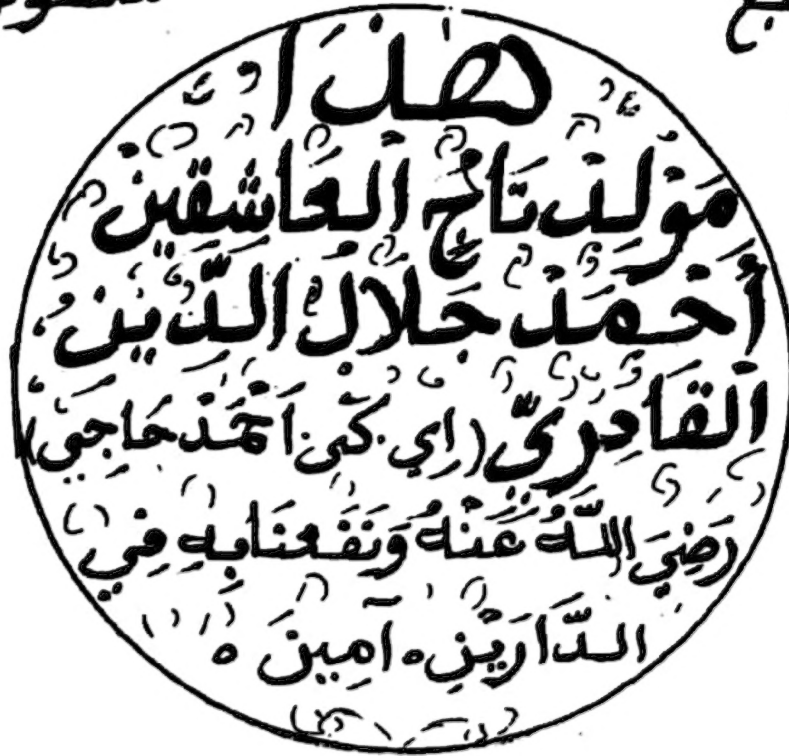 هٰذَا
مَوْلِدْ تَاجُ الْعَاشِقِينْ
أَحْمَدْ جَلَالُ الدِّينْ
الْقَادِرِيّ (اِي. كٜى. اَحْمَدْ حَاجِي)
رَضِيَ اللّٰهُ عَنْهُ وَنَفَعَنَا بِهِ فِي
الدَّارَيْنِ ٥ آمِينَ ٥